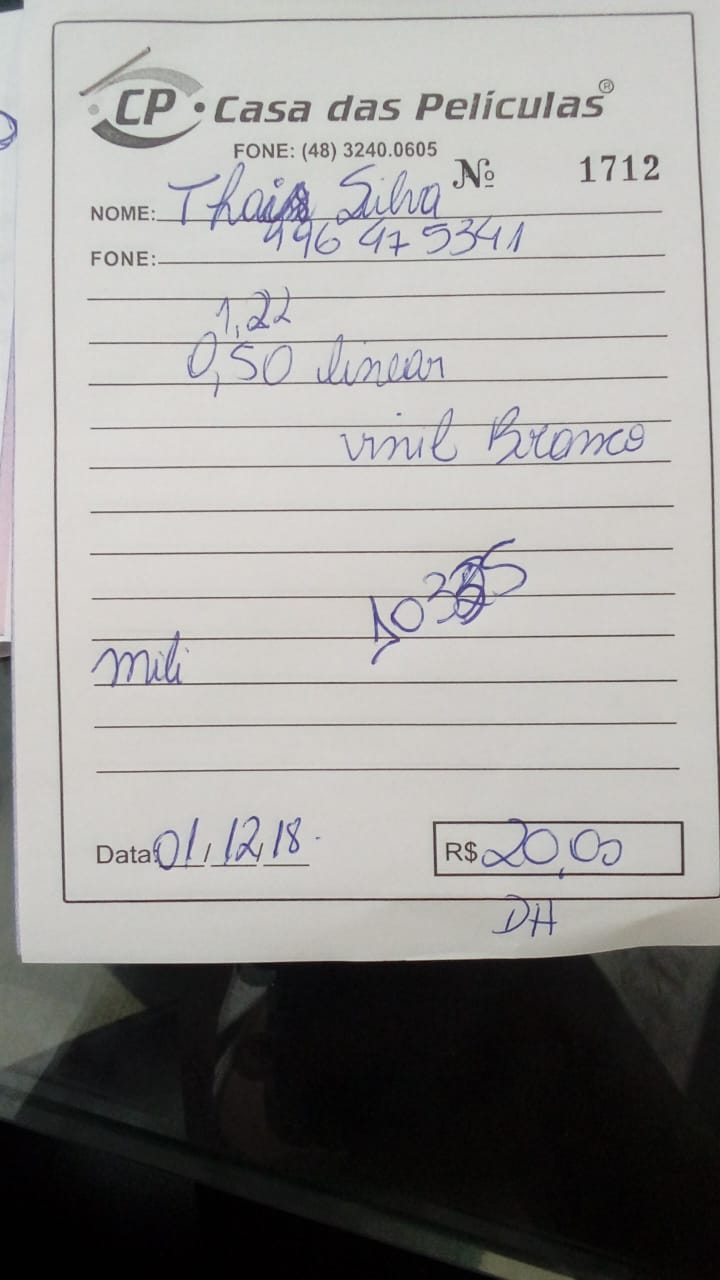 CP • Casa das Películas®
FONE: (48) 3240.0605
Nº 1712
NOME: Thais Silva
FONE: 996 475341
1,22
0,50 linear
vinil Branco
mili
Data: 01/12/18
R$ 20,00
DH